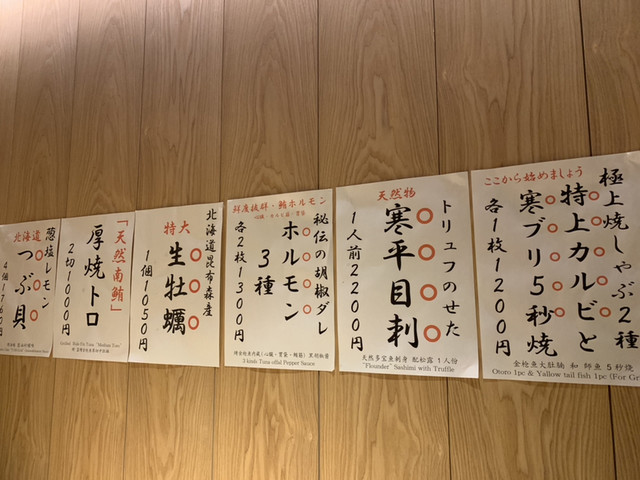 ここから始めましょう
極上焼しゃぶ2種
特上カルビと
寒ブリ5秒焼
各1枚1200円
金枪魚大肚腩 和 鰤魚 5秒焼
Otoro 1pc & Yellow tail fish 1pc (For Gr
天然物
トリュフのせた
寒平目刺
1人前2200円
天然多宝魚刺身 配松露 1人份
"Flounder" Sashimi with Truffle
鮮度抜群・鮪ホルモン
秘伝の胡椒ダレ
ホルモン
3種
各2枚1300円
3-kinds Tuna-offal Pepper Sauce
北海道昆布森産
特大
生牡蠣
1個1050円
「天然南鮪」
厚焼トロ
2切1000円
葱塩レモン
北海道
つぶ貝
4個1760円